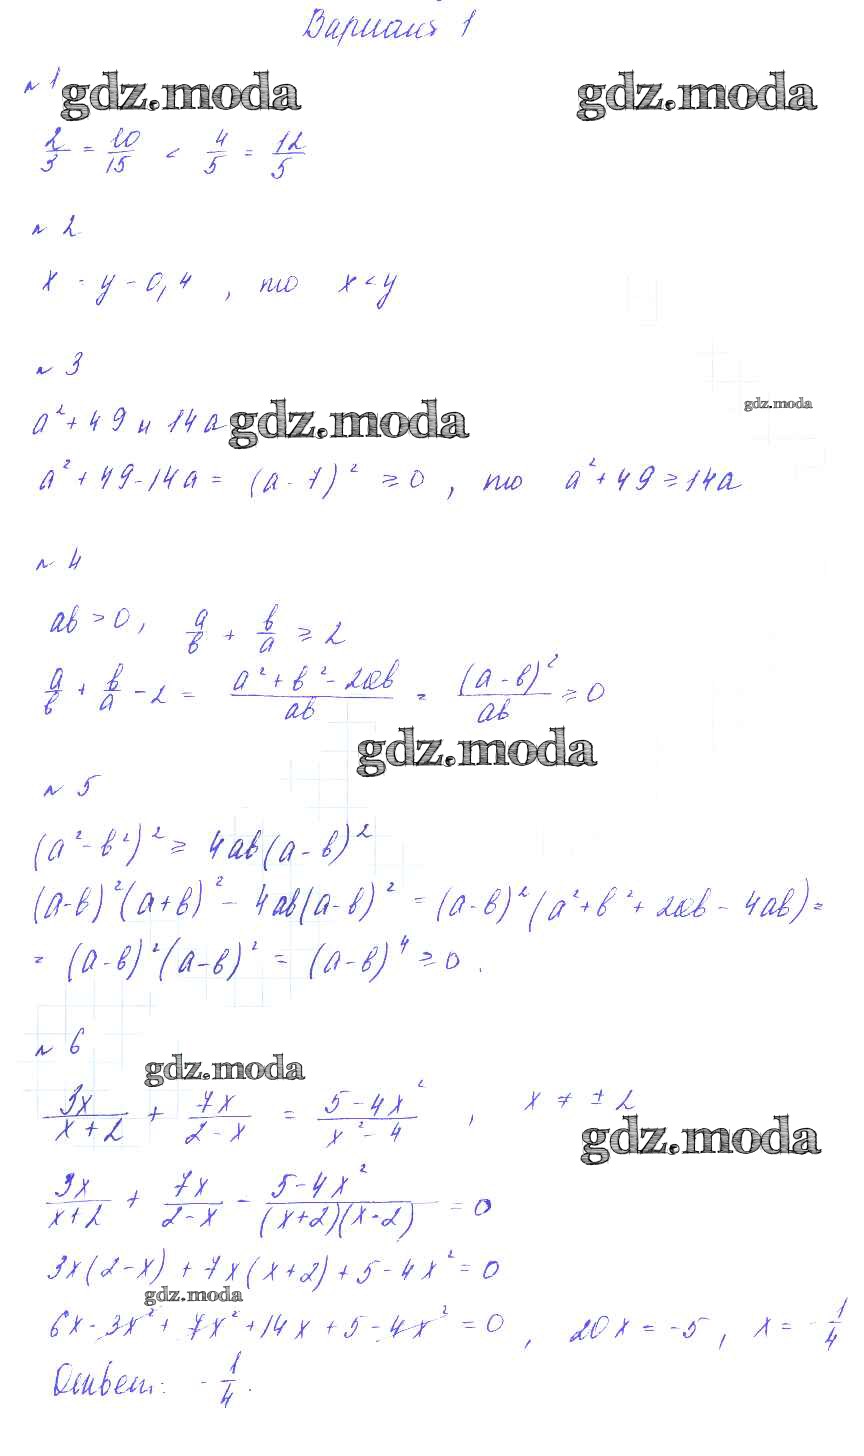 Вариант 1
№ 1
gdz.moda gdz.moda
2/3 = 10/15 < 4/5 = 12/5
№ 2
x - y - 0,4 , то x < y
№ 3
gdz.moda
a² + 49 и 14a gdz.moda
a² + 49 - 14a = (a - 7)² ≥ 0 , то a² + 49 ≥ 14a
№ 4
ab > 0, a/b + b/a ≥ 2
a/b + b/a - 2 = (a² + b² - 2ab)/(ab) = (a - b)²/(ab) ≥ 0
gdz.moda
№ 5
(a² - b²)² ≥ 4ab(a - b)²
(a - b)²(a + b)² - 4ab(a - b)² = (a - b)²(a² + b² + 2ab - 4ab) =
= (a - b)²(a - b)² = (a - b)⁴ ≥ 0.
№ 6
gdz.moda
3x/(x + 2) + 7x/(2 - x) = (5 - 4x²)/(x² - 4) , x ≠ ± 2
gdz.moda
3x/(x + 2) + 7x/(2 - x) - (5 - 4x²)/((x + 2)(x - 2)) = 0
3x(2 - x) + 7x(x + 2) + 5 - 4x² = 0
gdz.moda
6x - 3x² + 7x² + 14x + 5 - 4x² = 0 , 20x = -5 , x = -1/4
Ответ: -1/4.